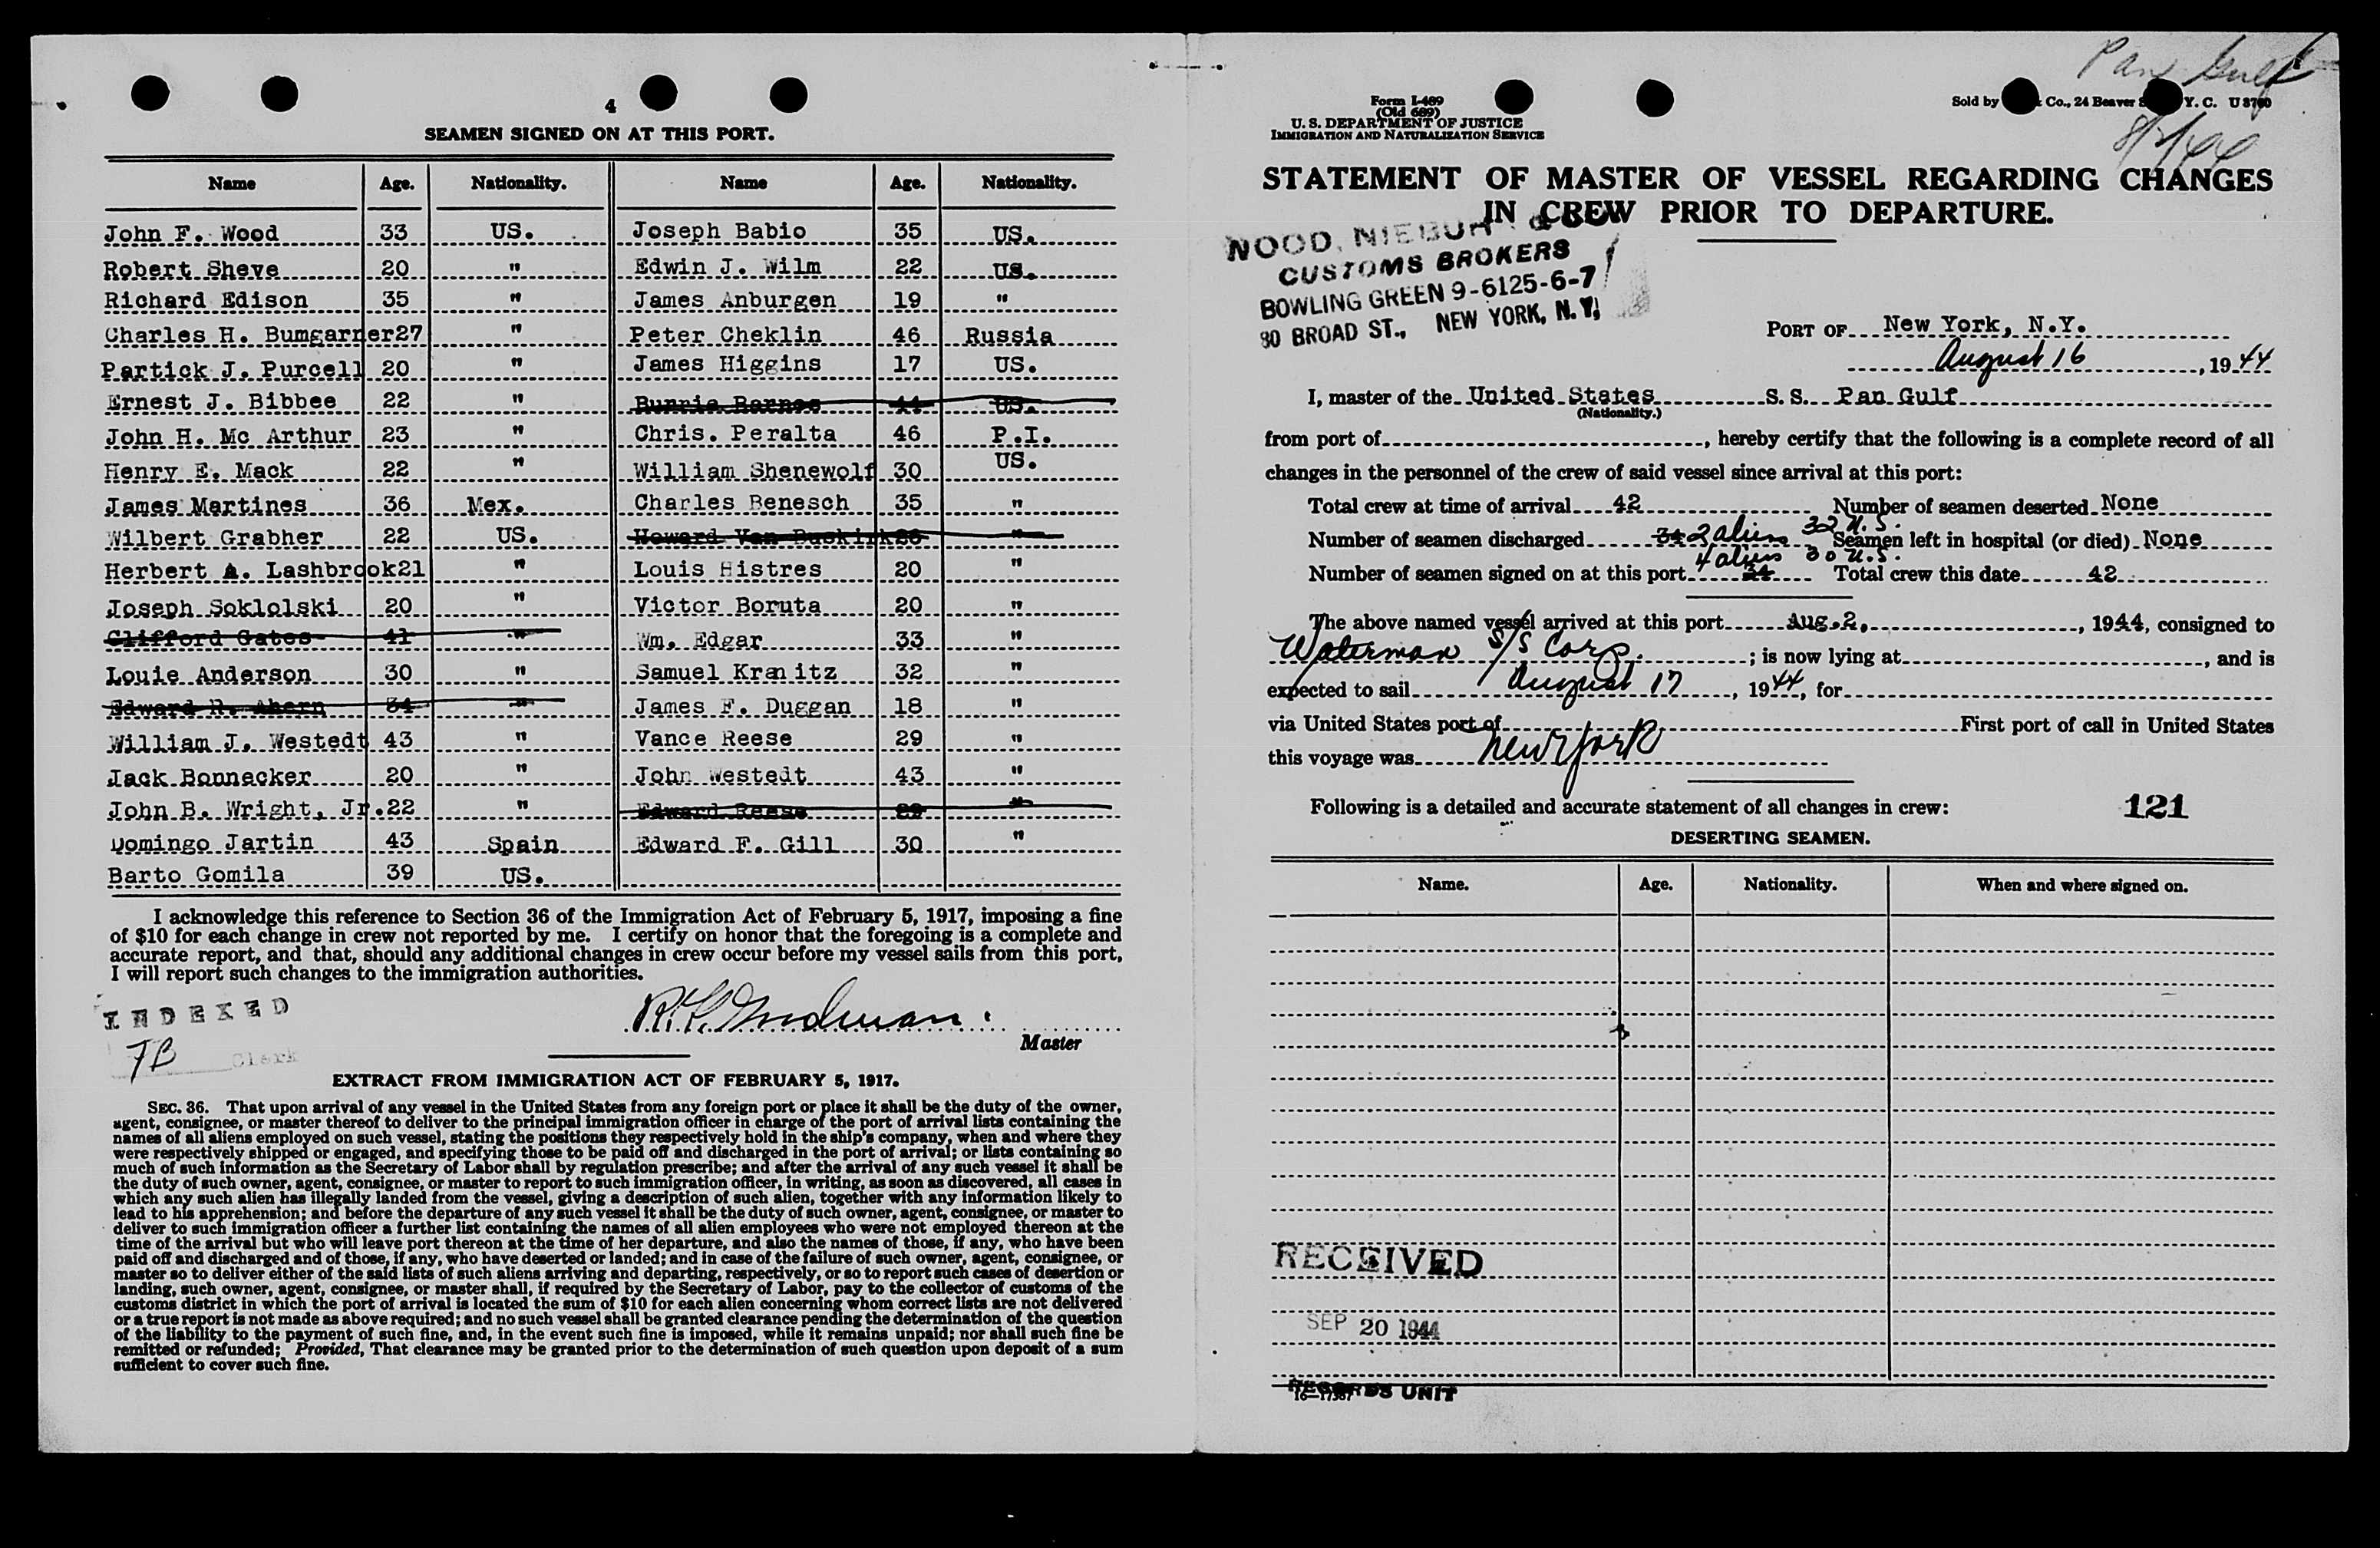 4
SEAMEN SIGNED ON AT THIS PORT.
Name Age. Nationality. Name Age. Nationality.
John F. Wood 33 US. Joseph Babio 35 US.
Robert Sheve 20 " Edwin J. Wilm 22 US.
Richard Edison 35 " James Anburgen 19 "
Charles H. Bumgarner27 " Peter Cheklin 46 Russia
Partick J. Purcell 20 " James Higgins 17 US.
Ernest J. Bibbee 22 " Burrie Barnes 44 US.
John H. Mc Arthur 23 " Chris. Peralta 46 P.I.
Henry E. Mack 22 " William Shenewolf 30 US.
James Martines 36 Mex. Charles Benesch 35 "
Wilbert Grabher 22 US. Howard Van Buskirk26 "
Herbert A. Lashbrook21 " Louis Histres 20 "
Joseph Soklolski 20 " Victor Boruta 20 "
Clifford Gates 41 " Wm. Edgar 33 "
Louie Anderson 30 " Samuel Kranitz 32 "
Edward R. Ahern 34 " James F. Duggan 18 "
William J. Westedt 43 " Vance Reese 29 "
Jack Bonnacker 20 " John Westedt 43 "
John B. Wright, Jr.22 " Edward Reese 29 "
Domingo Jartin 43 Spain Edward F. Gill 30 "
Barto Gomila 39 US.
I acknowledge this reference to Section 36 of the Immigration Act of February 5, 1917, imposing a fine
of $10 for each change in crew not reported by me. I certify on honor that the foregoing is a complete and
accurate report, and that, should any additional changes in crew occur before my vessel sails from this port,
I will report such changes to the immigration authorities.
INDEXED
TB Clerk
Master
EXTRACT FROM IMMIGRATION ACT OF FEBRUARY 5, 1917.
SEC. 36. That upon arrival of any vessel in the United States from any foreign port or place it shall be the duty of the owner,
agent, consignee, or master thereof to deliver to the principal immigration officer in charge of the port of arrival lists containing the
names of all aliens employed on such vessel, stating the positions they respectively hold in the ship's company, when and where they
were respectively shipped or engaged, and specifying those to be paid off and discharged in the port of arrival; or lists containing so
much of such information as the Secretary of Labor shall by regulation prescribe; and after the arrival of any such vessel it shall be
the duty of such owner, agent, consignee, or master to report to such immigration officer, in writing, as soon as discovered, all cases in
which any such alien has illegally landed from the vessel, giving a description of such alien, together with any information likely to
lead to his apprehension; and before the departure of any such vessel it shall be the duty of such owner, agent, consignee, or master to
deliver to such immigration officer a further list containing the names of all alien employees who were not employed thereon at the
time of the arrival but who will leave port thereon at the time of her departure, and also the names of those, if any, who have been
paid off and discharged and of those, if any, who have deserted or landed; and in case of the failure of such owner, agent, consignee, or
master so to deliver either of the said lists of such aliens arriving and departing, respectively, or so to report such cases of desertion or
landing, such owner, agent, consignee, or master shall, if required by the Secretary of Labor, pay to the collector of customs of the
customs district in which the port of arrival is located the sum of $10 for each alien concerning whom correct lists are not delivered
or a true report is not made as above required; and no such vessel shall be granted clearance pending the determination of the question
of the liability to the payment of such fine, and, in the event such fine is imposed, while it remains unpaid; nor shall such fine be
remitted or refunded; Provided, That clearance may be granted prior to the determination of such question upon deposit of a sum
sufficient to cover such fine.
Pan Gulf
8/2/44
Form I-489
(Old 689)
U. S. DEPARTMENT OF JUSTICE
IMMIGRATION AND NATURALIZATION SERVICE
Sold by Co., 24 Beaver Y. C. U 8700
STATEMENT OF MASTER OF VESSEL REGARDING CHANGES
IN CREW PRIOR TO DEPARTURE.
WOOD, NIEBUHR & CO
CUSTOMS BROKERS
BOWLING GREEN 9-6125-6-7
80 BROAD ST., NEW YORK, N.Y.
PORT OF New York, N.Y.
August 16, 1944
I, master of the United States S. S. Pan Gulf
(Nationality.)
from port of , hereby certify that the following is a complete record of all
changes in the personnel of the crew of said vessel since arrival at this port:
Total crew at time of arrival 42 Number of seamen deserted None
Number of seamen discharged 34 2 aliens 32 U.S. Seamen left in hospital (or died) None
Number of seamen signed on at this port 34 4 aliens 30 U.S. Total crew this date 42
The above named vessel arrived at this port Aug. 2, , 1944, consigned to
Waterman S/S Corp. ; is now lying at , and is
expected to sail August 17, 1944, for
via United States port of First port of call in United States
this voyage was New York
Following is a detailed and accurate statement of all changes in crew: 121
DESERTING SEAMEN.
Name. Age. Nationality. When and where signed on.
RECEIVED
SEP 20 1944
RECORDS UNIT
16—17387